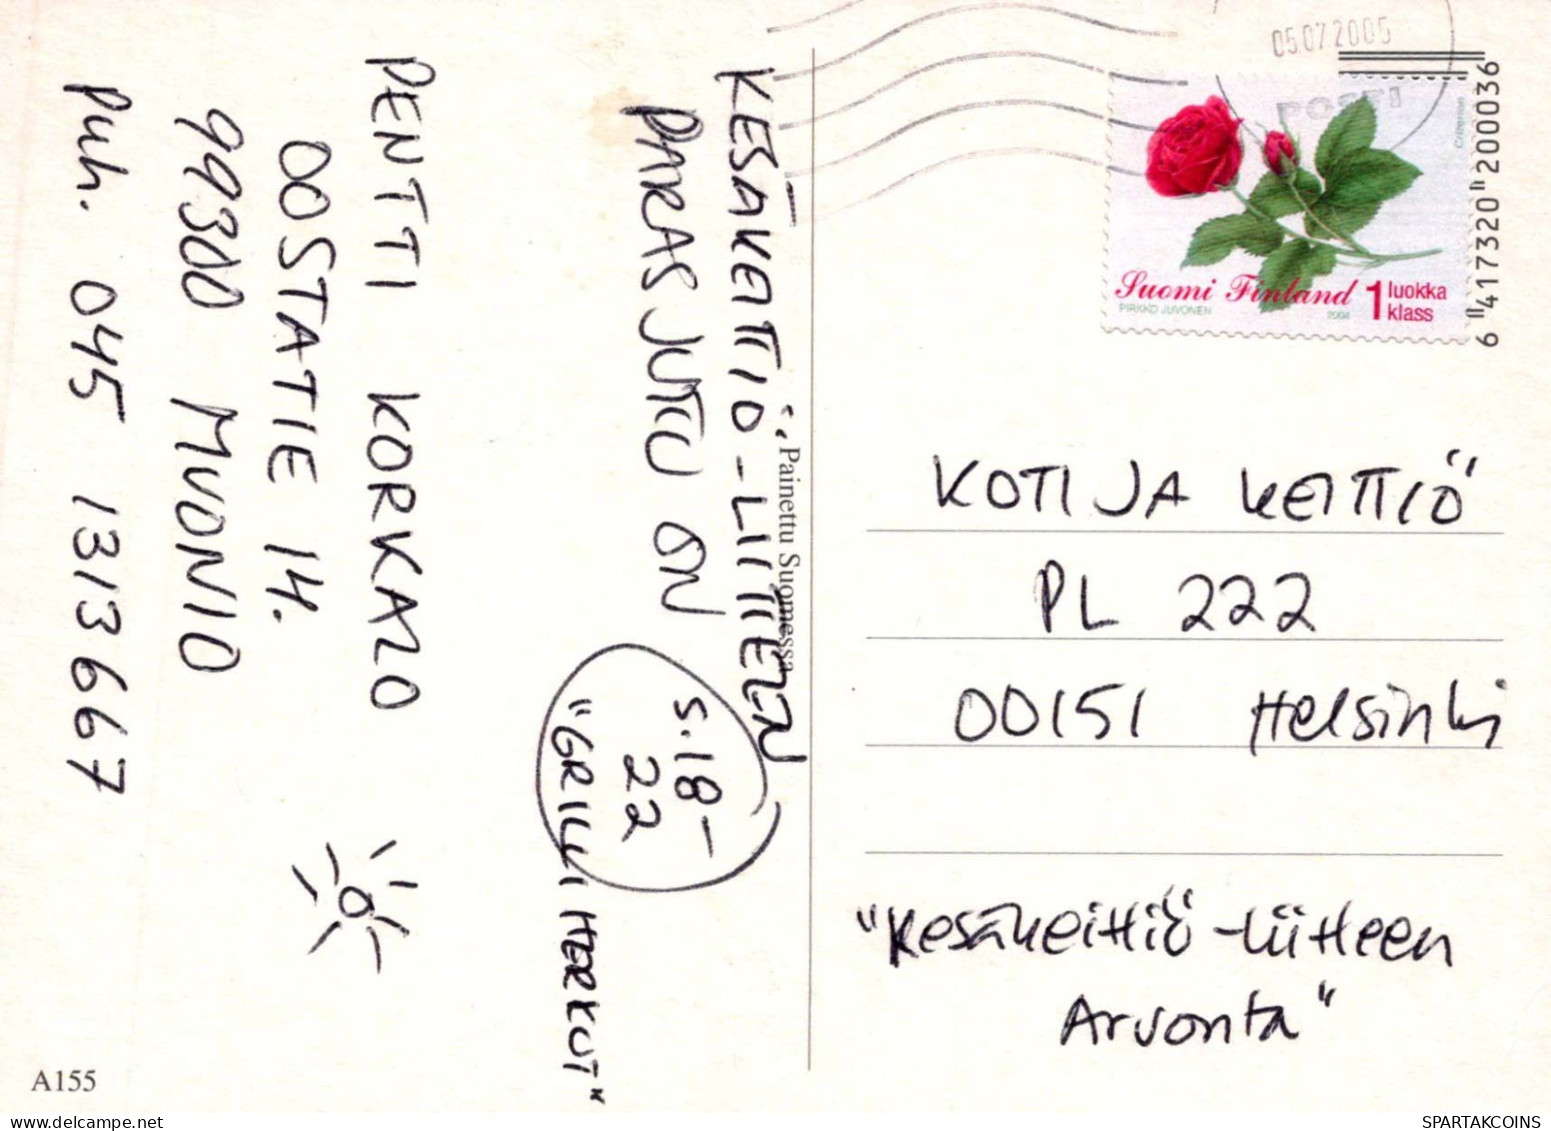 KESÄKEITTIÖ-LIITTEEN
PARAS JUTTU ON
S. 18-
22
"GRILLI HERKUT"
PENTTI KORKALO
OOSTATIE 14.
99300 MUONIO
Puh. 045 1313667
A155
Painettu Suomessa
05.07.2005
POSTI
Suomi Finland 1 luokka
klass
PIRKKO JUVONEN 2004
6 417320 200036
KOTI JA KEITTIÖ
PL 222
00151 Helsinki
"Kesäkeittiö-liitteen
Arvonta"
www.delcampe.net
SPARTAKCOINS